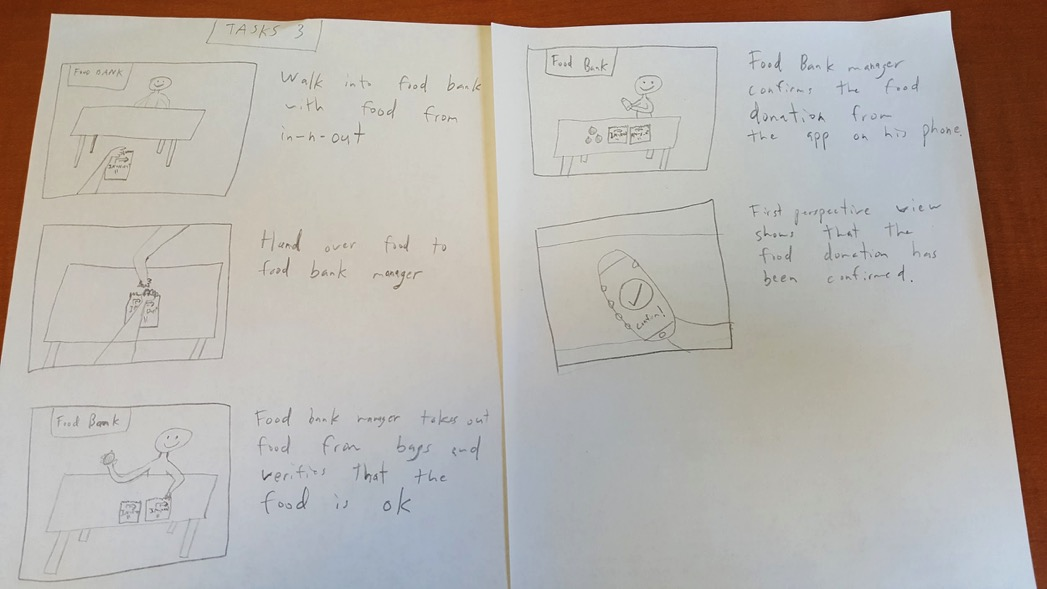 TASKS 3
Food BANK
Walk into food bank
with food from
in-n-out
Hand over food to
food bank manager
Food Bank
Food bank manger takes out
food from bags and
verifies that the
food is ok
Food Bank
Food Bank manager
confirms the food
donation from
the app on his phone.
First perspective view
shows that the
food donation has
been confirmed.